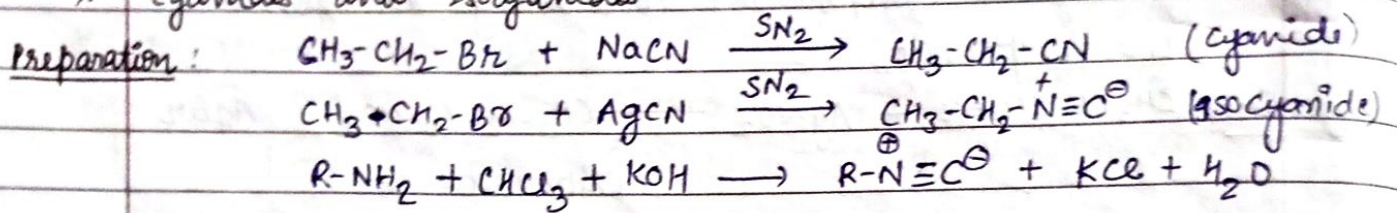 Cyanides and Isocyanides
Preparation : CH₃-CH₂-Br + NaCN —SN₂→ CH₃-CH₂-CN (Cyanide)
CH₃-CH₂-Br + AgCN —SN₂→ CH₃-CH₂-N⁺≡C⊖ (Isocyanide)
R-NH₂ + CHCl₃ + KOH ⟶ R-N⊕≡C⊖ + KCl + H₂O